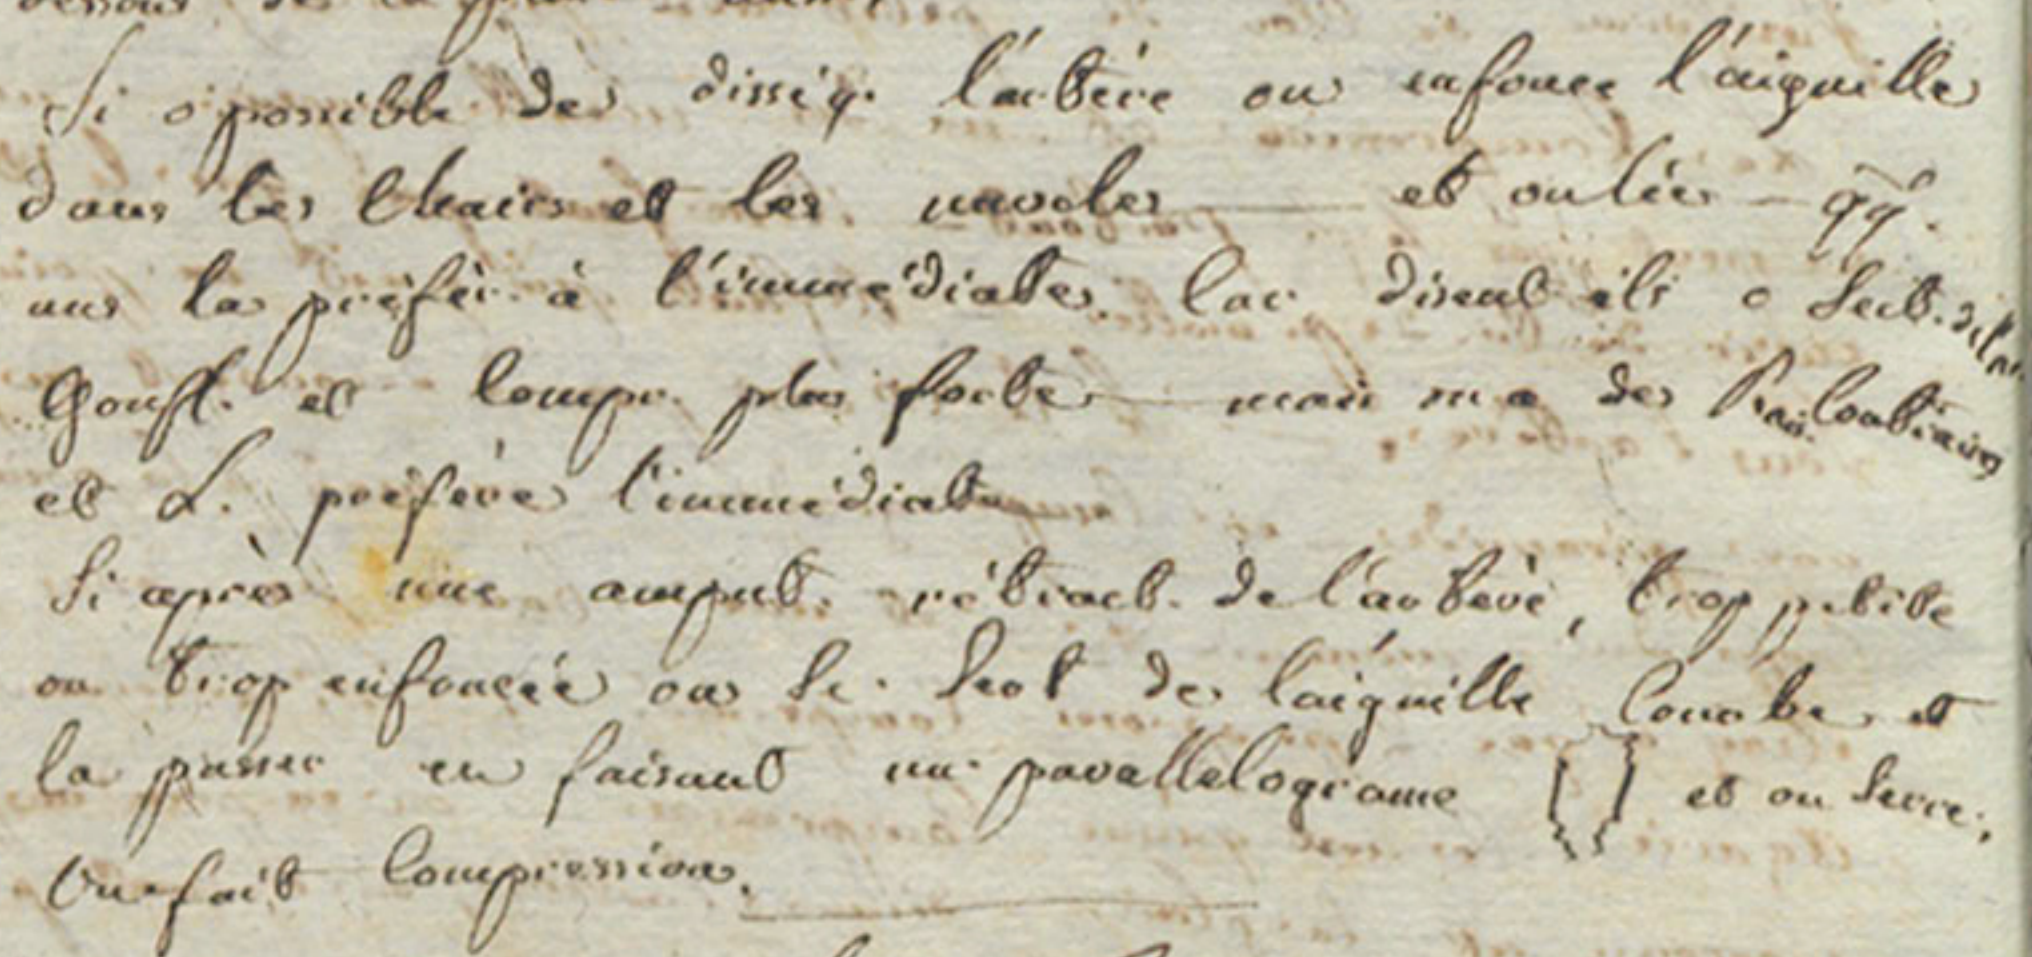 Si o possible de disséq. l'artère on enfonce l'aiguille
dans les chairs et les muscles — et on lie — qq.
uns la préfèr. à l'immédiate. Car disent ils o Sect. de l'ar.
Gonfl. et compr. plus forte — mais on a des Rais. contraires
et L. préfère l'immédiate
Si après une amput. rétract. de l'artère, trop petite
ou trop enfoncée on se sert de l'aiguille courbe et
la passer en faisant un parallelograme et on serre.
On fait compression.